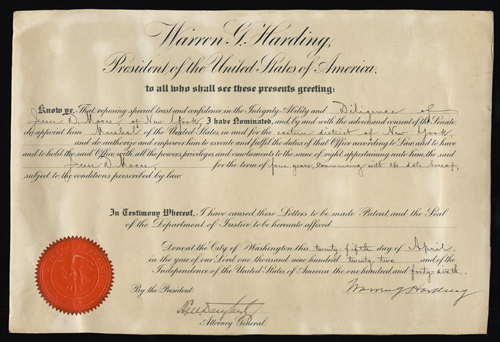 Warren G. Harding,
President of the United States of America.
to all who shall see these presents greeting:
Know ye, That reposing special trust and confidence in the Integrity Ability and Diligence of
D. Moore, of New York, I have Nominated, and by and with the advice and consent of the Senate
do appoint him Marshal of the United States in and for the eastern district of New York,
and do authorize and empower him to execute and fulfil the duties of that Office according to Law and to have
and to hold the said Office with all the powers privileges and emoluments to the same of right appertaining unto him the said
D. Moore, for the term of four years, commencing with the date hereof,
subject to the conditions prescribed by law
In Testimony Whereof, I have caused these Letters to be made Patent and the Seal
of the Department of Justice to be hereunto affixed
Done at the City of Washington this twenty fifth day of April
in the year of our Lord one thousand nine hundred twenty two and of the
Independence of the United States of America the one hundred and forty sixth.
By the President: Warren G Harding
Attorney General.